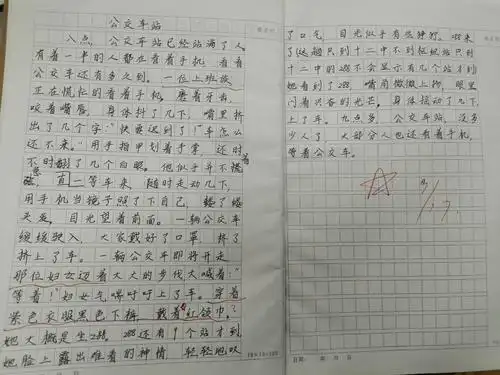 公交车站
八点，公交车站已经站满了人
有着一半的人都在看着手机，看看
公交车还有多久到。一位上班族
正在慌忙的看着手机，磨着牙齿，
咬着嘴唇，身体抖了几下，嘴里挤
出了几个字：“快要迟到了！车怎么
还不来。”用手指甲划着手掌，还时
不时翻了几个白眼。他似乎并不慌着
急，直一等车来，随时走动几下，
用手机当镜子照了下自己，
头发，目光望着前面。一辆公交车
缓缓驶入，大家戴好了口罩，挤了
挤上了车。一辆公交车即将开走
那位妇女迈着大大的步伐大喊着：“
等着！”妇女气喘吁吁上了车。穿着
紫色衣服黑色下梅，戴着红领巾。
她大概是坐288。288还有9个站才到，
她脸上露出难看的神情，轻轻地叹
了口气，目光似乎有些狰狞。288来
了（这趟只到十二中不到枢纽站只到
十二中的288不会显示有几个站才到）
她看到了288，嘴角微微上扬，眼里
闪着兴奋的光芒。身体摇动了几下，
上了车。九点多，公交车站，没多
少人了，大部分人也还看着手机，
等着公交车。